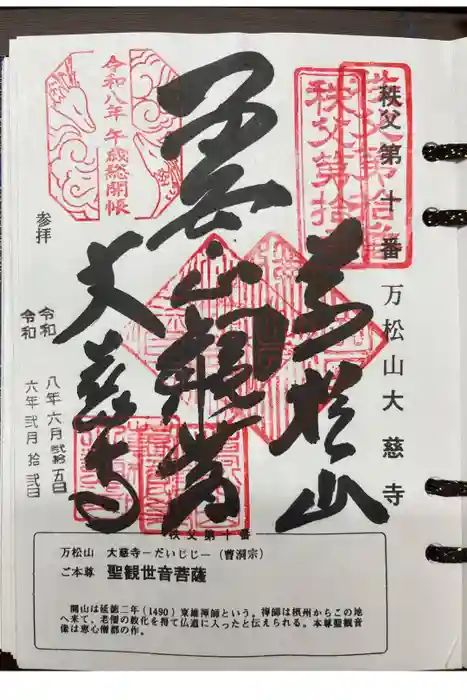 秩父第十番 万松山大慈寺
秩父第拾番
万松山
聖観世音
大慈寺
令和八年午歳総開帳
参拝
令和 八年 六月 弐拾五日
令和 六年 弐月 拾弐日
秩父第十番
万松山 大慈寺－だいじじ－（曹洞宗）
ご本尊 聖観世音菩薩
開山は延徳二年（1490）東雄禅師という。禅師は摂州からこの地
へ来て、老僧の教化を得て仏道に入ったと伝えられる。本尊聖観音
像は恵心僧都の作。